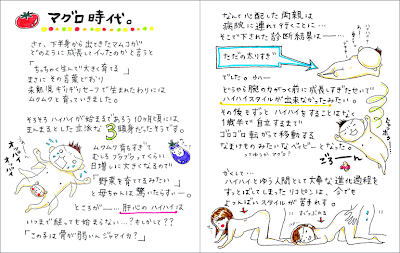 マグロ時代。
さて、下半身から出てきたマムコが
どのように成長していったのかと言うと
「ちっちゃく生んで大きく育てる」
まさにその言葉どおり
未熟児ギリギリセーフで生まれたわりには
ムクムクと育っていきました。
そろそろハイハイが始まるであろう10ヶ月頃には
まんまるとした立派な3頭身だったそうです。
ムクムク育ちすぎて
むいろフラグラってくらい
日増しに大きくなるので
「野菜を育ててるみたい」
と母ちゃんは驚いたらすぃー。
ところが――…肝心のハイハイは
いつまで経っても始まらない…?もしかして??
「この子は骨が弱いんジャマイカ?」
なんて心配した両親は
病院に連れて行くことに…
そこで下された診断結果は――…
ただの太りすぎ
でした。
どうやら腰のわかつく前に成長しすぎたせいで
ハイハイスタイルが出来なかったみたい。
その後もずっとハイハイをすることはなく
1歳半で自立するまで
ゴロゴロ転がって移動する
なまけものみたいなベイビーとなった
ってゆうかマグロ?
ごろーん
かくして…
ハイハイとゆう人間として大事な進化過程を
すっとばしてしまったリコピンは、今でも
よつんばいスタイルが苦手れす。